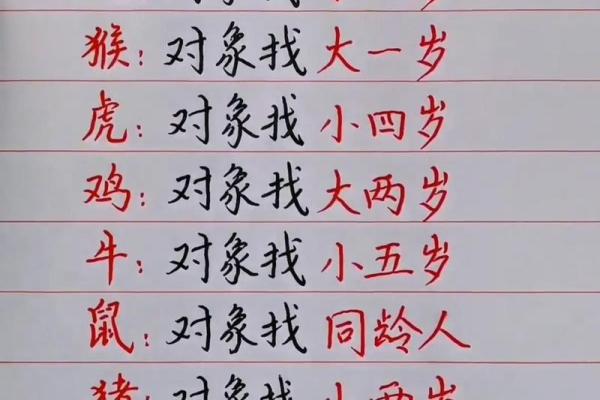 猴：对象找大一岁
虎：对象找小四岁
鸡：对象找大两岁
牛：对象找小五岁
鼠：对象找同龄人
猪：对象找小两岁